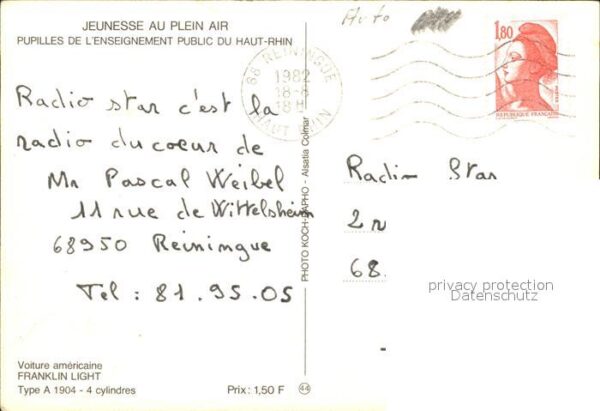 JEUNESSE AU PLEIN AIR
PUPILLES DE L'ENSEIGNEMENT PUBLIC DU HAUT-RHIN
Auto
68 REININGUE
1982
18-8
18H
HAUT-RHIN
1,80
REPUBLIQUE FRANÇAISE
Radio star c'est la
radio du coeur de
Mr Pascal Weibel
11 rue de Wittelsheim
68950 Reiningue
Tel : 81.95.05
PHOTO KOCH-RAPHO - Alsatia Colmar
Radio Star
2 r
68
privacy protection
Datenschutz
Voiture américaine
FRANKLIN LIGHT
Type A 1904 - 4 cylindres
Prix: 1,50 F
44